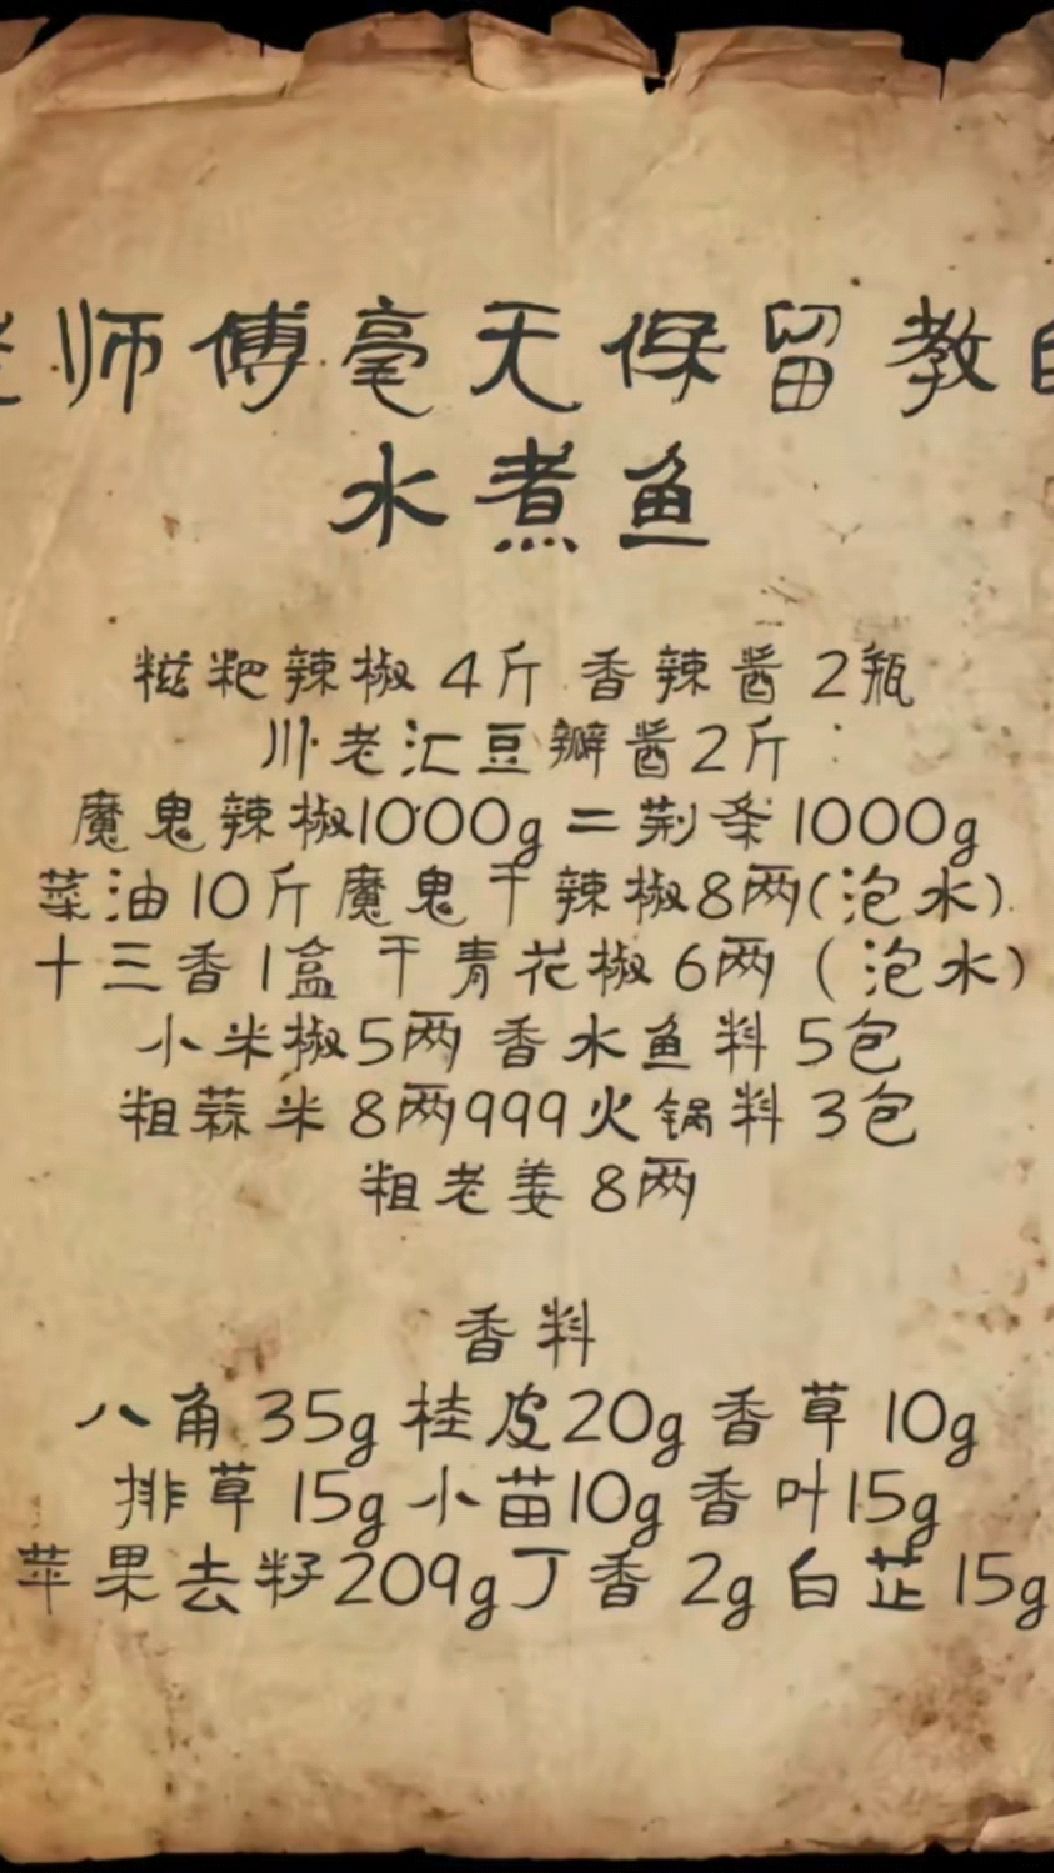 老师傅毫无保留教白
水煮鱼
糍粑辣椒 4斤 香辣酱 2瓶
川老汇豆瓣酱2斤
魔鬼辣椒1000g 二荆条1000g
菜油10斤 魔鬼干辣椒8两(泡水)
十三香1盒 干青花椒 6两 (泡水)
小米椒5两 香水鱼料 5包
粗蒜米 8两999火锅料 3包
粗老姜 8两
香料
八角 35g 桂皮20g 香草 10g
排草 15g 小苗10g 香叶15g
苹果去籽209g丁香 2g 白芷15g